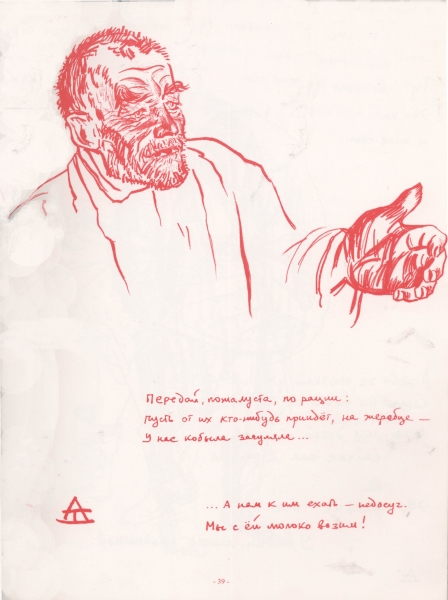 Передай, пожалуста, по рации:
пусть от их кто-нибудь приидёт, на жеребце —
У нас кобыла загуляла...
... А нам к им ехать — недосуг.
Мы с ей молоко возим!
- 39 -